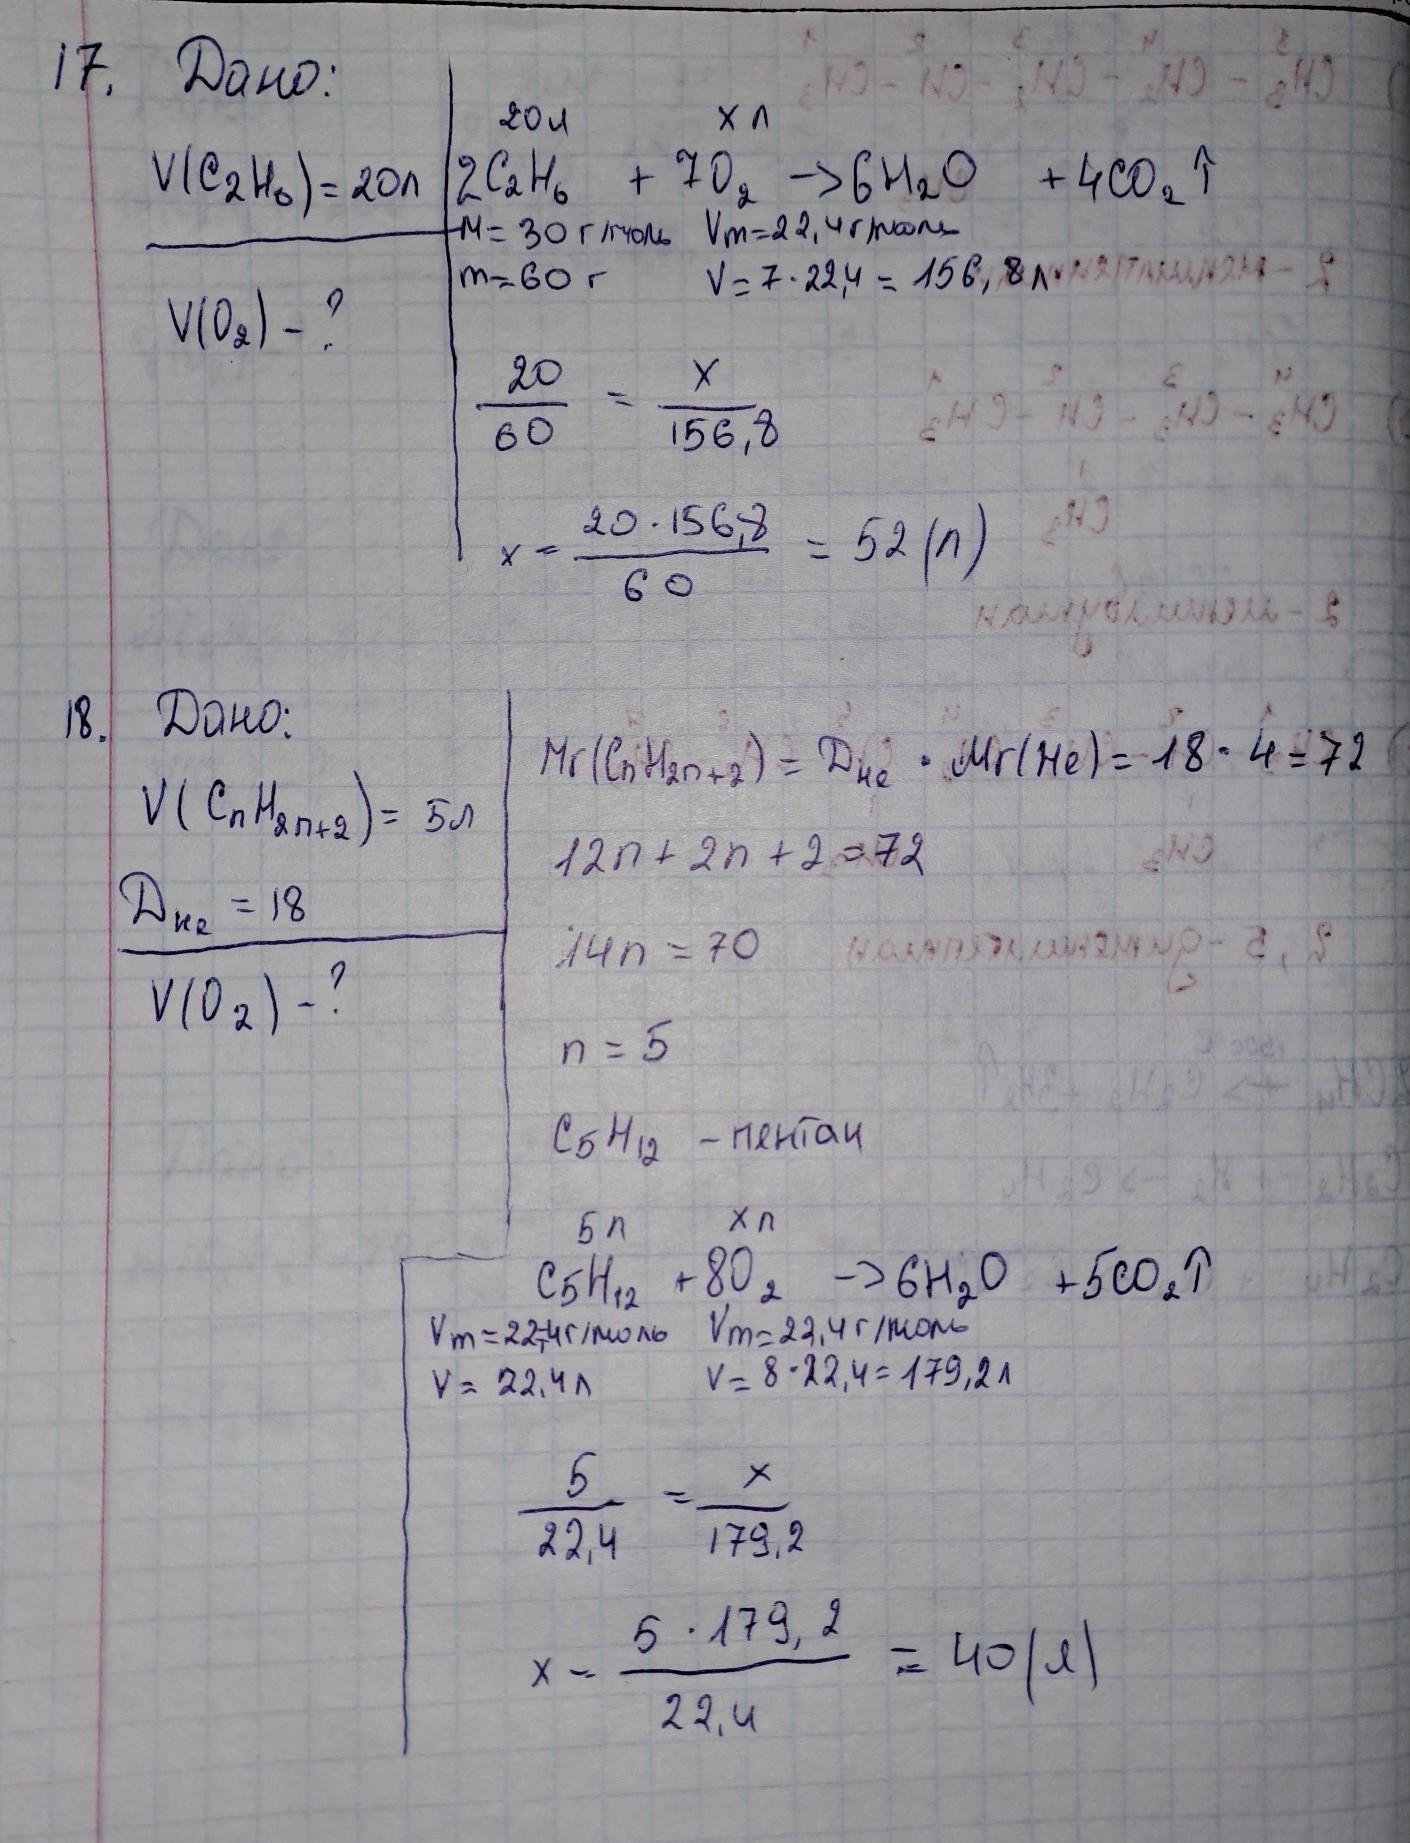 17. Дано:
V(C₂H₆) = 20л
V(O₂) - ?
20л x л
2C₂H₆ + 7O₂ -> 6H₂O + 4CO₂↑
M = 30 г/моль Vm = 22,4 г/моль
m = 60 г V = 7 · 22,4 = 156,8 л
20/60 = x/156,8
x = 20 · 156,8/60 = 52 (л)
18. Дано:
V(CnH2n+2) = 5л
Dне = 18
V(O₂) - ?
Mr(CnH2n+2) = Dне · Mr(He) = 18 · 4 = 72
12n + 2n + 2 = 72
14n = 70
n = 5
C₅H₁₂ - пентан
5л x л
C₅H₁₂ + 8O₂ -> 6H₂O + 5CO₂↑
Vm = 22,4 г/моль Vm = 22,4 г/моль
V = 22,4 л V = 8 · 22,4 = 179,2 л
5/22,4 = x/179,2
x = 5 · 179,2/22,4 = 40 (л)